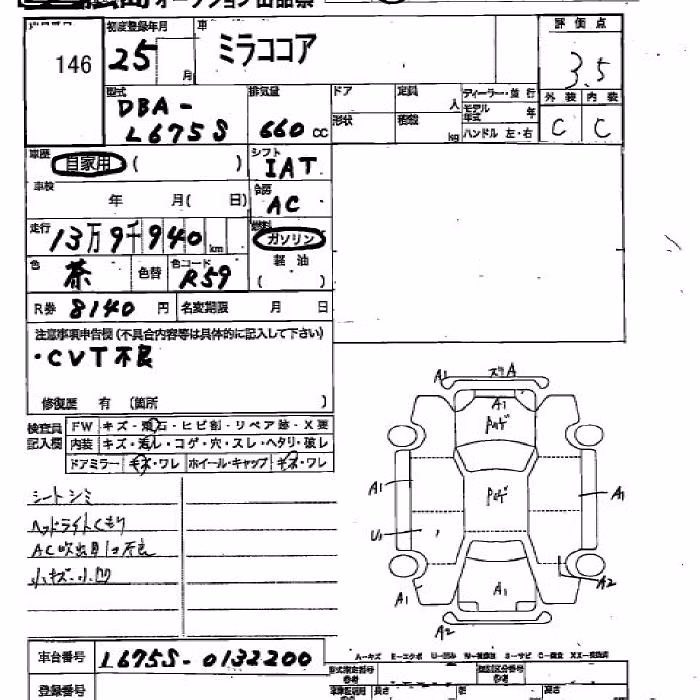 オークション出品票
146
初度登録年月 車
25 月 ミラココア
評価点
3.5
外装 内装
C C
型式 排気量 ドア 定員 人 ディーラー・並行
DBA- モデル年式 年
L675S 660 CC 形状 積載 kg ハンドル 左・右
車歴 自家用 ( ) シフト IAT
車検 年 月( 日) 冷房 AC
走行 13万9千940 km 燃料 ガソリン
軽油
( )
色 茶 色替 色コード R59
R券 8140 円 名変期限 月 日
注意事項申告欄(不具合内容等は具体的に記入して下さい)
・CVT不良
修復歴 有 (箇所 )
検査員記入欄 FW キズ・飛石・ヒビ割・リペア跡・X要
内装 キズ・汚レ・コゲ・穴・スレ・ヘタリ・破レ
ドアミラー キズ・ワレ ホイール・キャップ キズ・ワレ
シートシミ
ヘッドライトくもり
AC吹出口不良
小キズ・小凹
A1 スリA
A1
ハゲ
A1 ハゲ A1
U1
A1 A1 A2
A2
車台番号 L675S-0132200
登録番号
A-キズ E-エクボ U-凹み
型式指定番号 参考 類別区分番号 参考
長さ 高さ